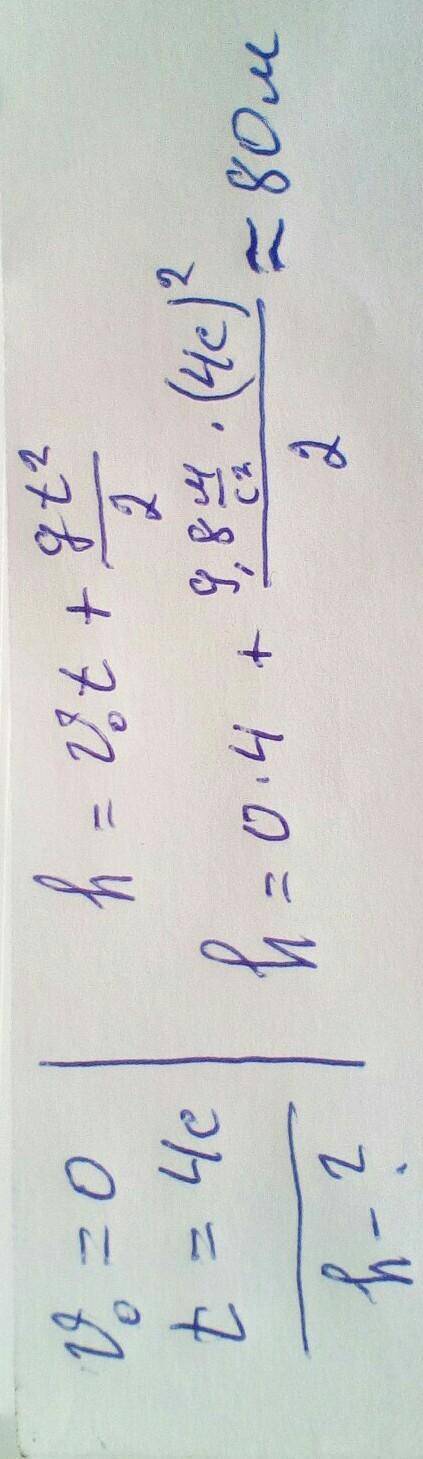 v₀ = 0
t = 4c
h - ?
h = v₀t + gt²/2
h = 0·4 + 9,8 м/c² · (4c)²/2 ≈ 80м